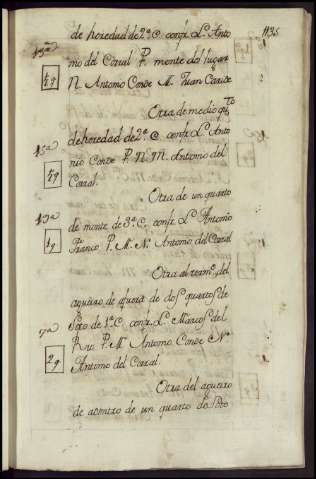 de heredad de 2ª C. confr. L. Anto
1135
nio del Corral P. monte del lugar
N. Antonio Conde M. Juan Conde
½q
Otra de medio q.to
15ª
de heredad de 2ª C. confr. L. Anto
nio Conde P. N. M. Antonio del
½q
Corral.
Otra de un quarto
de monte de 3ª C. confr. L. Antonio
1q
Franco P. M. N. Antonio del Corral
Otra al term.o del
aqueiro de afuera de dos quartos de
Soto de 1ª C. confr. L. Marcos del
Rio P. M. Antonio Conde N.
2q
Antonio del Corral.
Otra del aqueiro
de adentro de un quarto de Soto